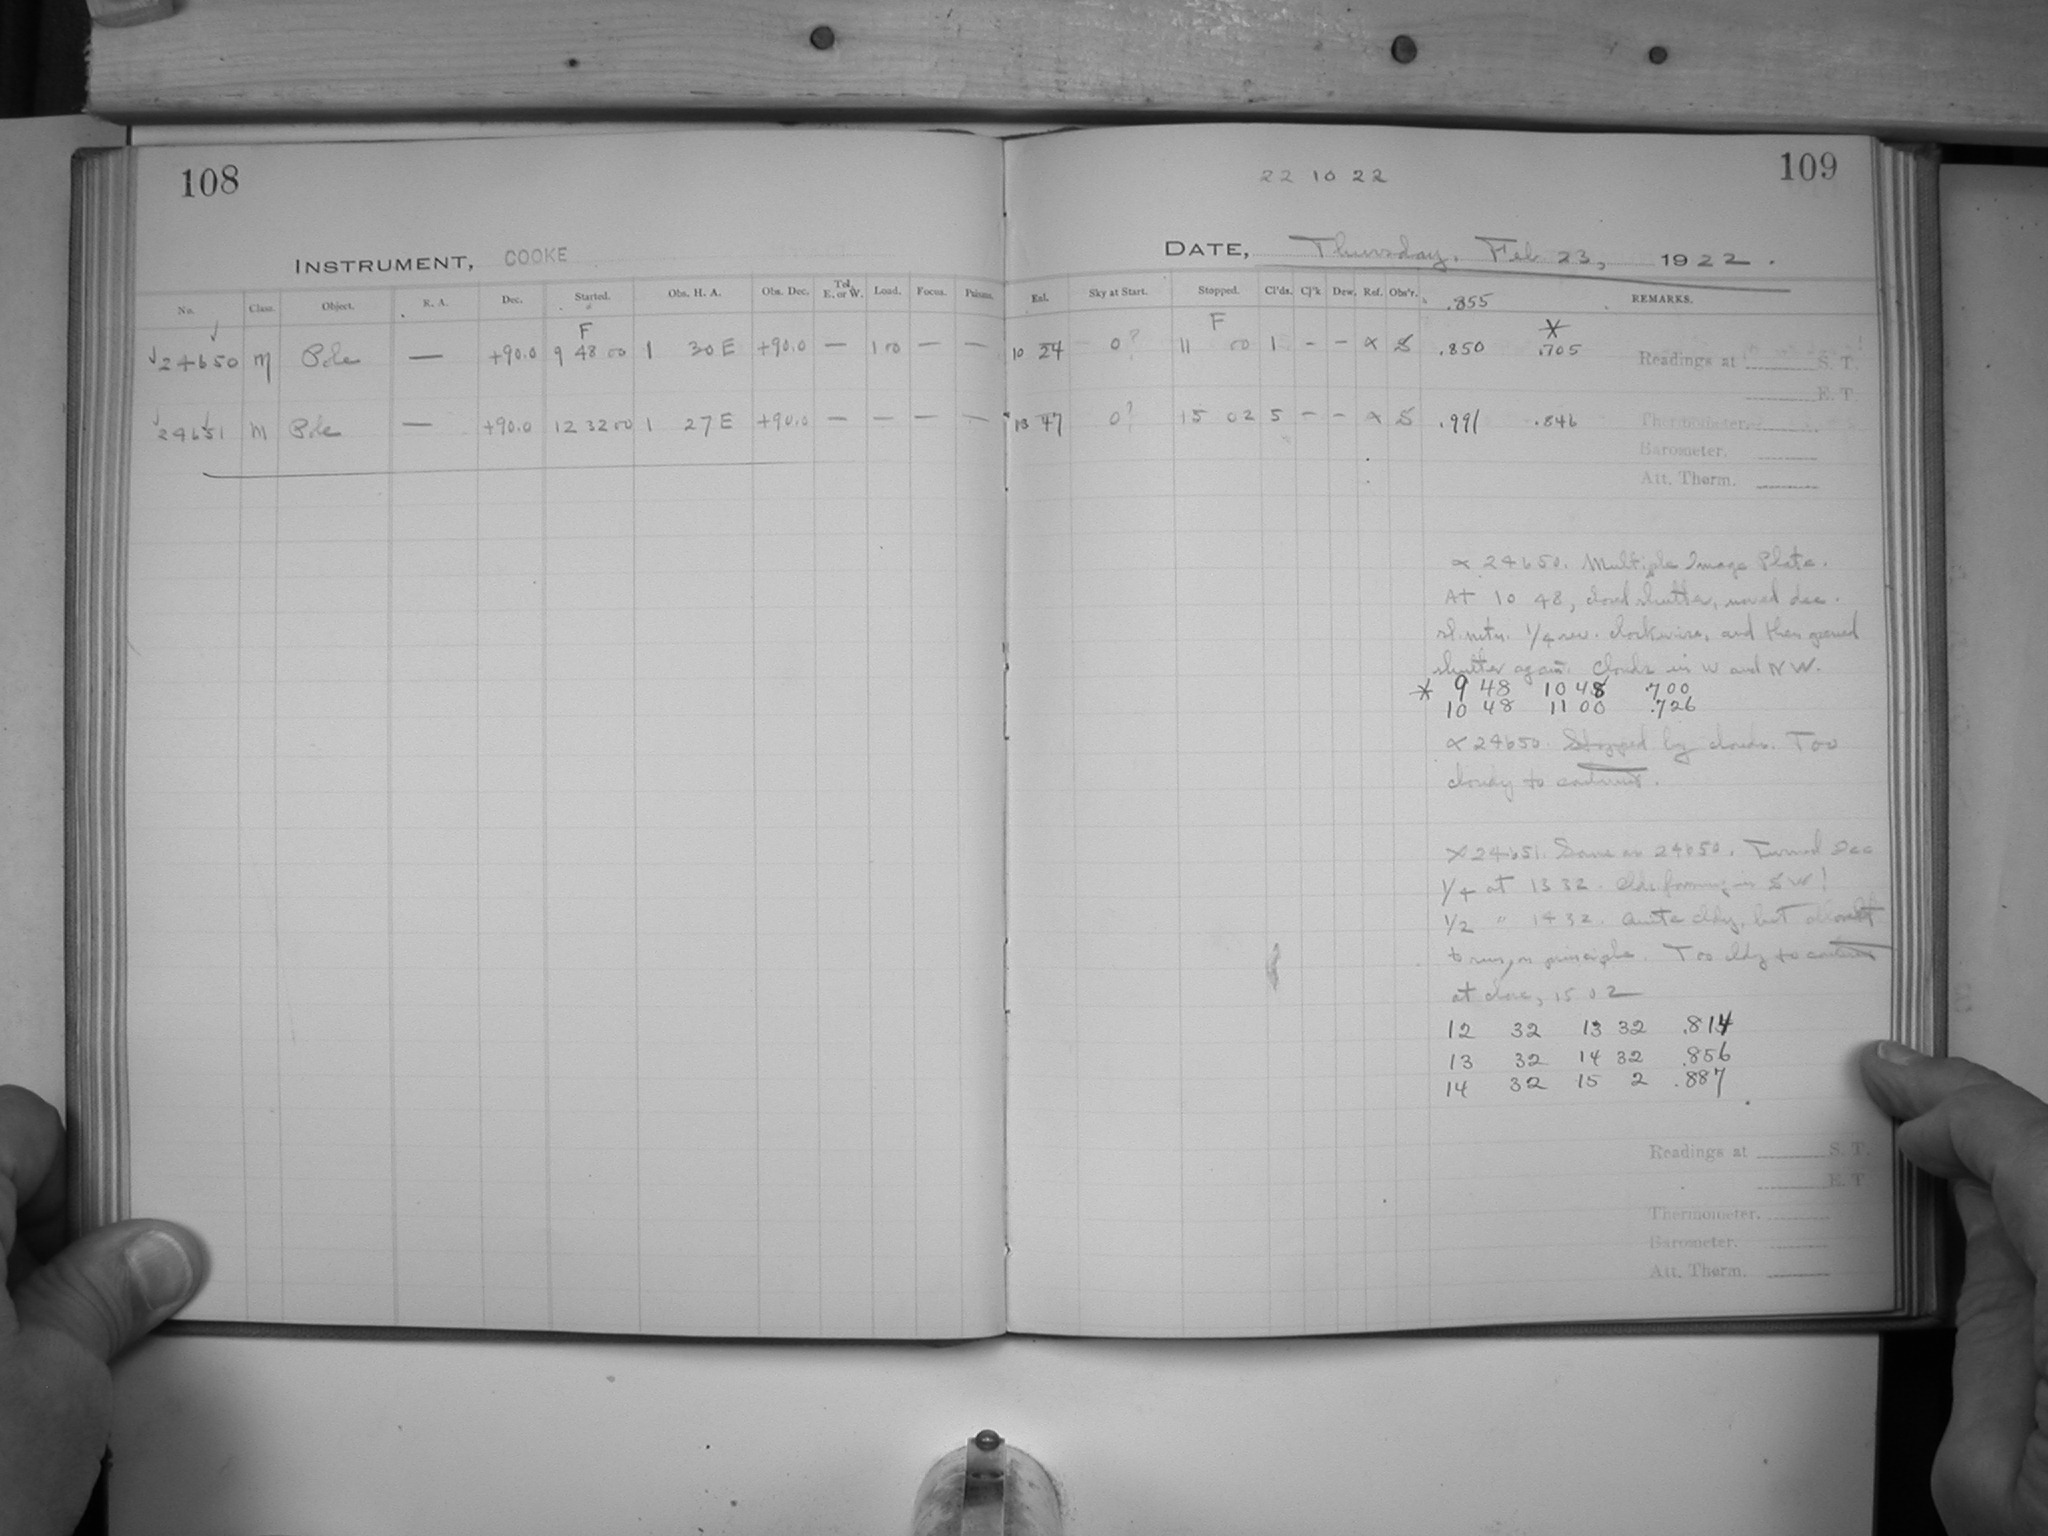 108
INSTRUMENT, COOKE
No. Class. Object. R. A. Dec. Started. Obs. H. A. Obs. Dec. Tel. E. or W. Load. Focus. Prisms.
F
24650 M Pole — +90.0 9 48 00 1 30 E +90.0 — 100 — —
24651 M Pole — +90.0 12 32 00 1 27 E +90.0 — — — —
22 10 22
109
DATE, Thursday, Feb 23, 1922.
Exf. Sky at Start. Stopped. Cl'ds. Cl'k Dew. Ref. Obs'r. .855 REMARKS.
F *
10 24 0? 11 00 1 - - α S .850 .705
Readings at S. T.
E. T.
13 47 0? 15 02 5 - - α S .991 .846
Thermometer.
Barometer.
Att. Therm.
α 24650. Multiple Image Plate.
At 10 48, closed shutter, moved dec.
sl. mtn. 1/4 rev. clockwise, and then opened
shutter again. Clouds in W and NW.
* 9 48 10 48 .700
10 48 11 00 .726
α 24650. Stopped by clouds. Too
cloudy to continue.
α 24651. Same as 24650. Turned Dec
1/4 at 13 32. Clds forming in SW!
1/2 " 14 32. Quite cldy, but
to run, on principle. Too cldy to continue
at close, 15 02
12 32 13 32 .814
13 32 14 32 .856
14 32 15 2 .887
Readings at S. T.
E. T.
Thermometer.
Barometer.
Att. Therm.